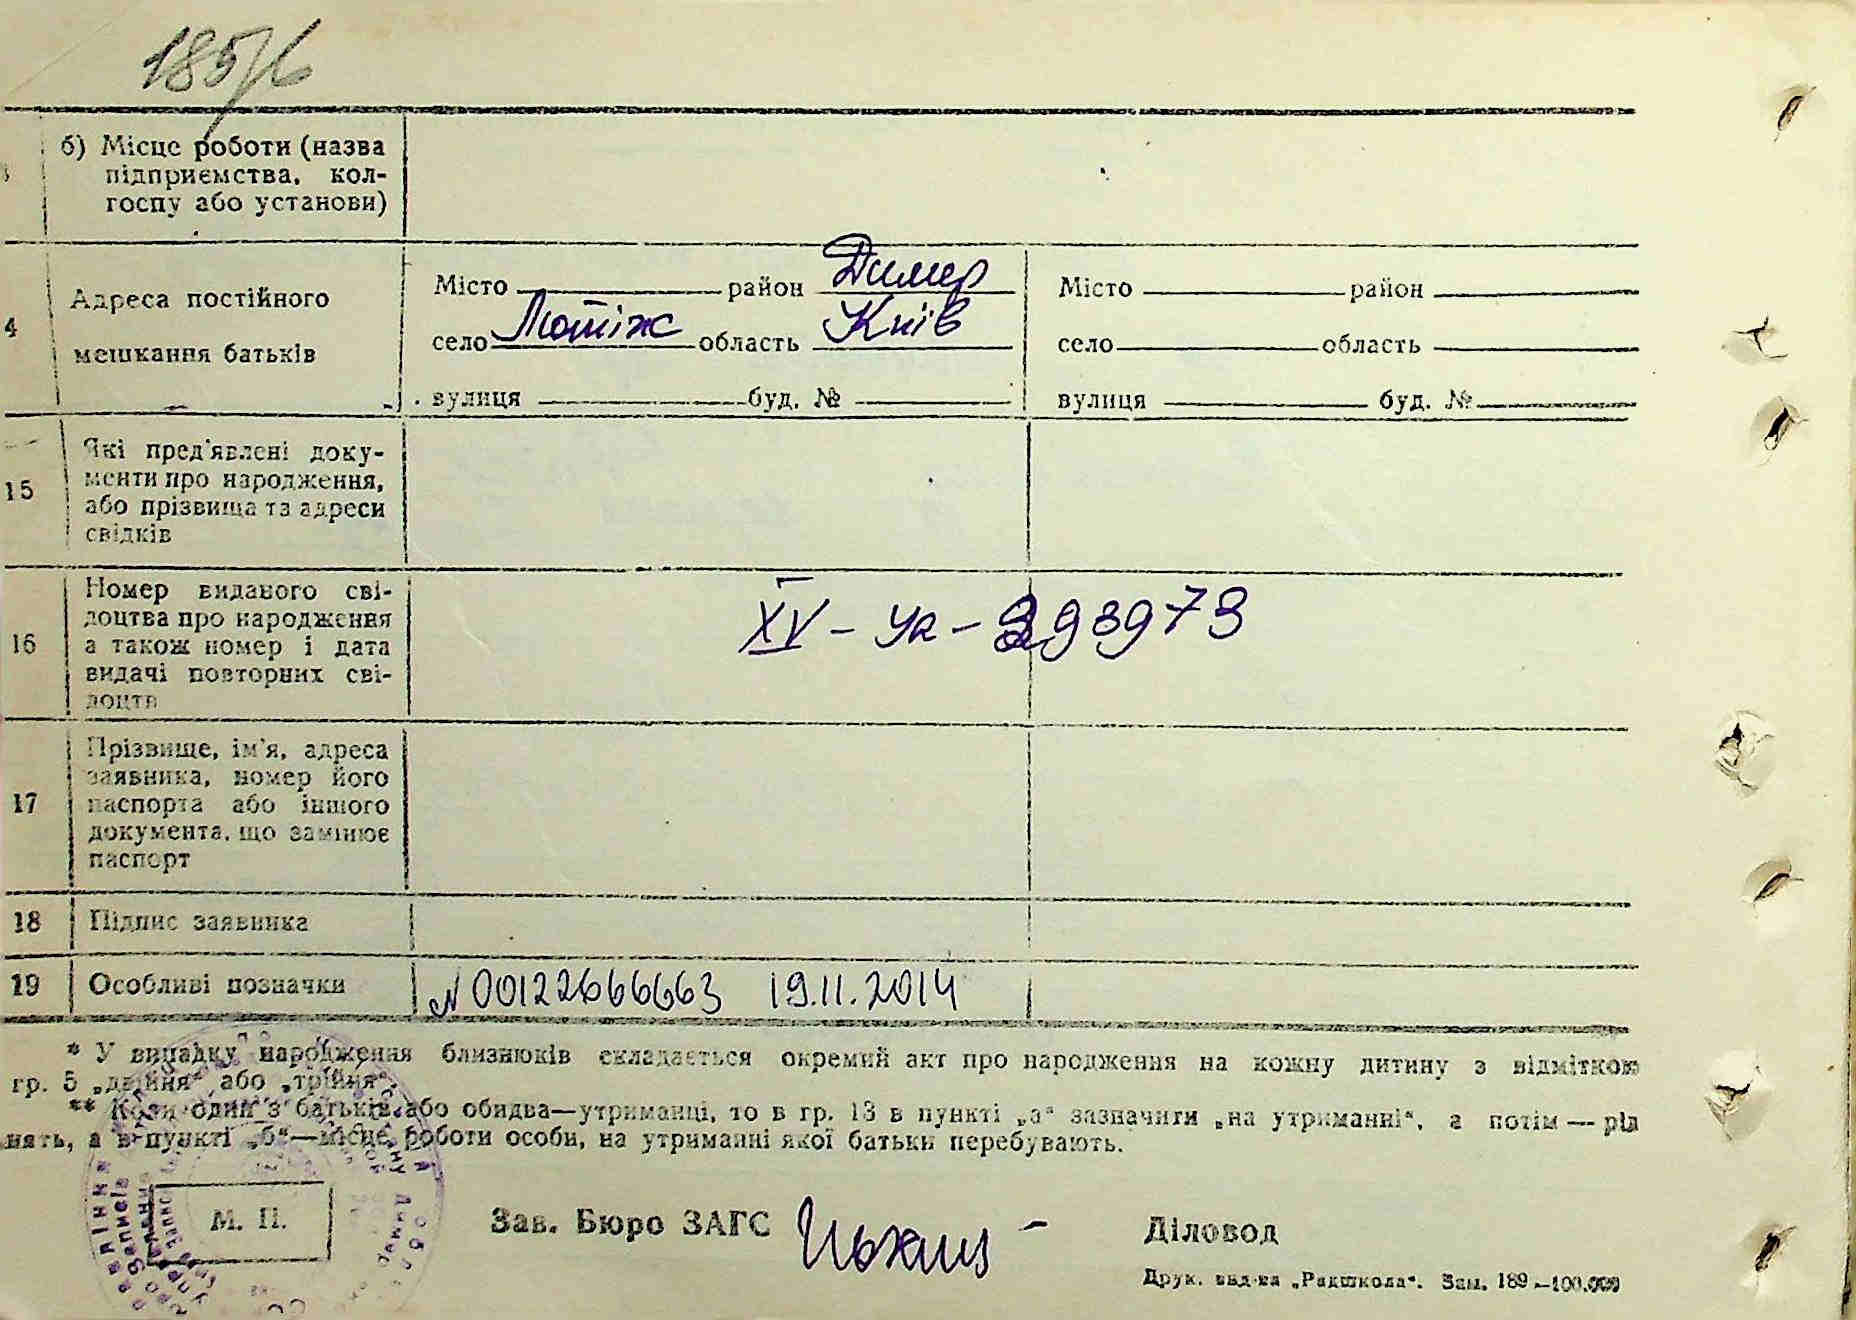 185/6
б) Місце роботи (назва
підприємства, кол-
госпу або установи)
4
Адреса постійного
мешкання батьків
Місто район Димер
село Лютіж область Київ
вулиця буд. №
Місто район
село область
вулиця буд. №
15
Які пред'явлені доку-
менти про народження,
або прізвища та адреси
свідків
16
Номер виданого сві-
доцтва про народження
а також номер і дата
видачі повторних сві-
доцтв
XV - УК - 393973
17
Прізвище, ім'я, адреса
заявника, номер його
паспорта або іншого
документа, що замінює
паспорт
18
Підпис заявника
19
Особливі позначки
N 00122666663 19.11.2014
* У випадку народження близнюків складається окремий акт про народження на кожну дитину з відміткою
гр. 5 „двійня“ або „трійня“.
** Коли один з батьків або обидва—утриманці, то в гр. 13 в пункті „а“ зазначити „на утриманні“, а потім — рід
нять, а в пункті „б“—місце роботи особи, на утриманні якої батьки перебувають.
М. П.
Зав. Бюро ЗАГС
Діловод
Друк. вид-ва „Радшкола“. Зам. 189—100.000